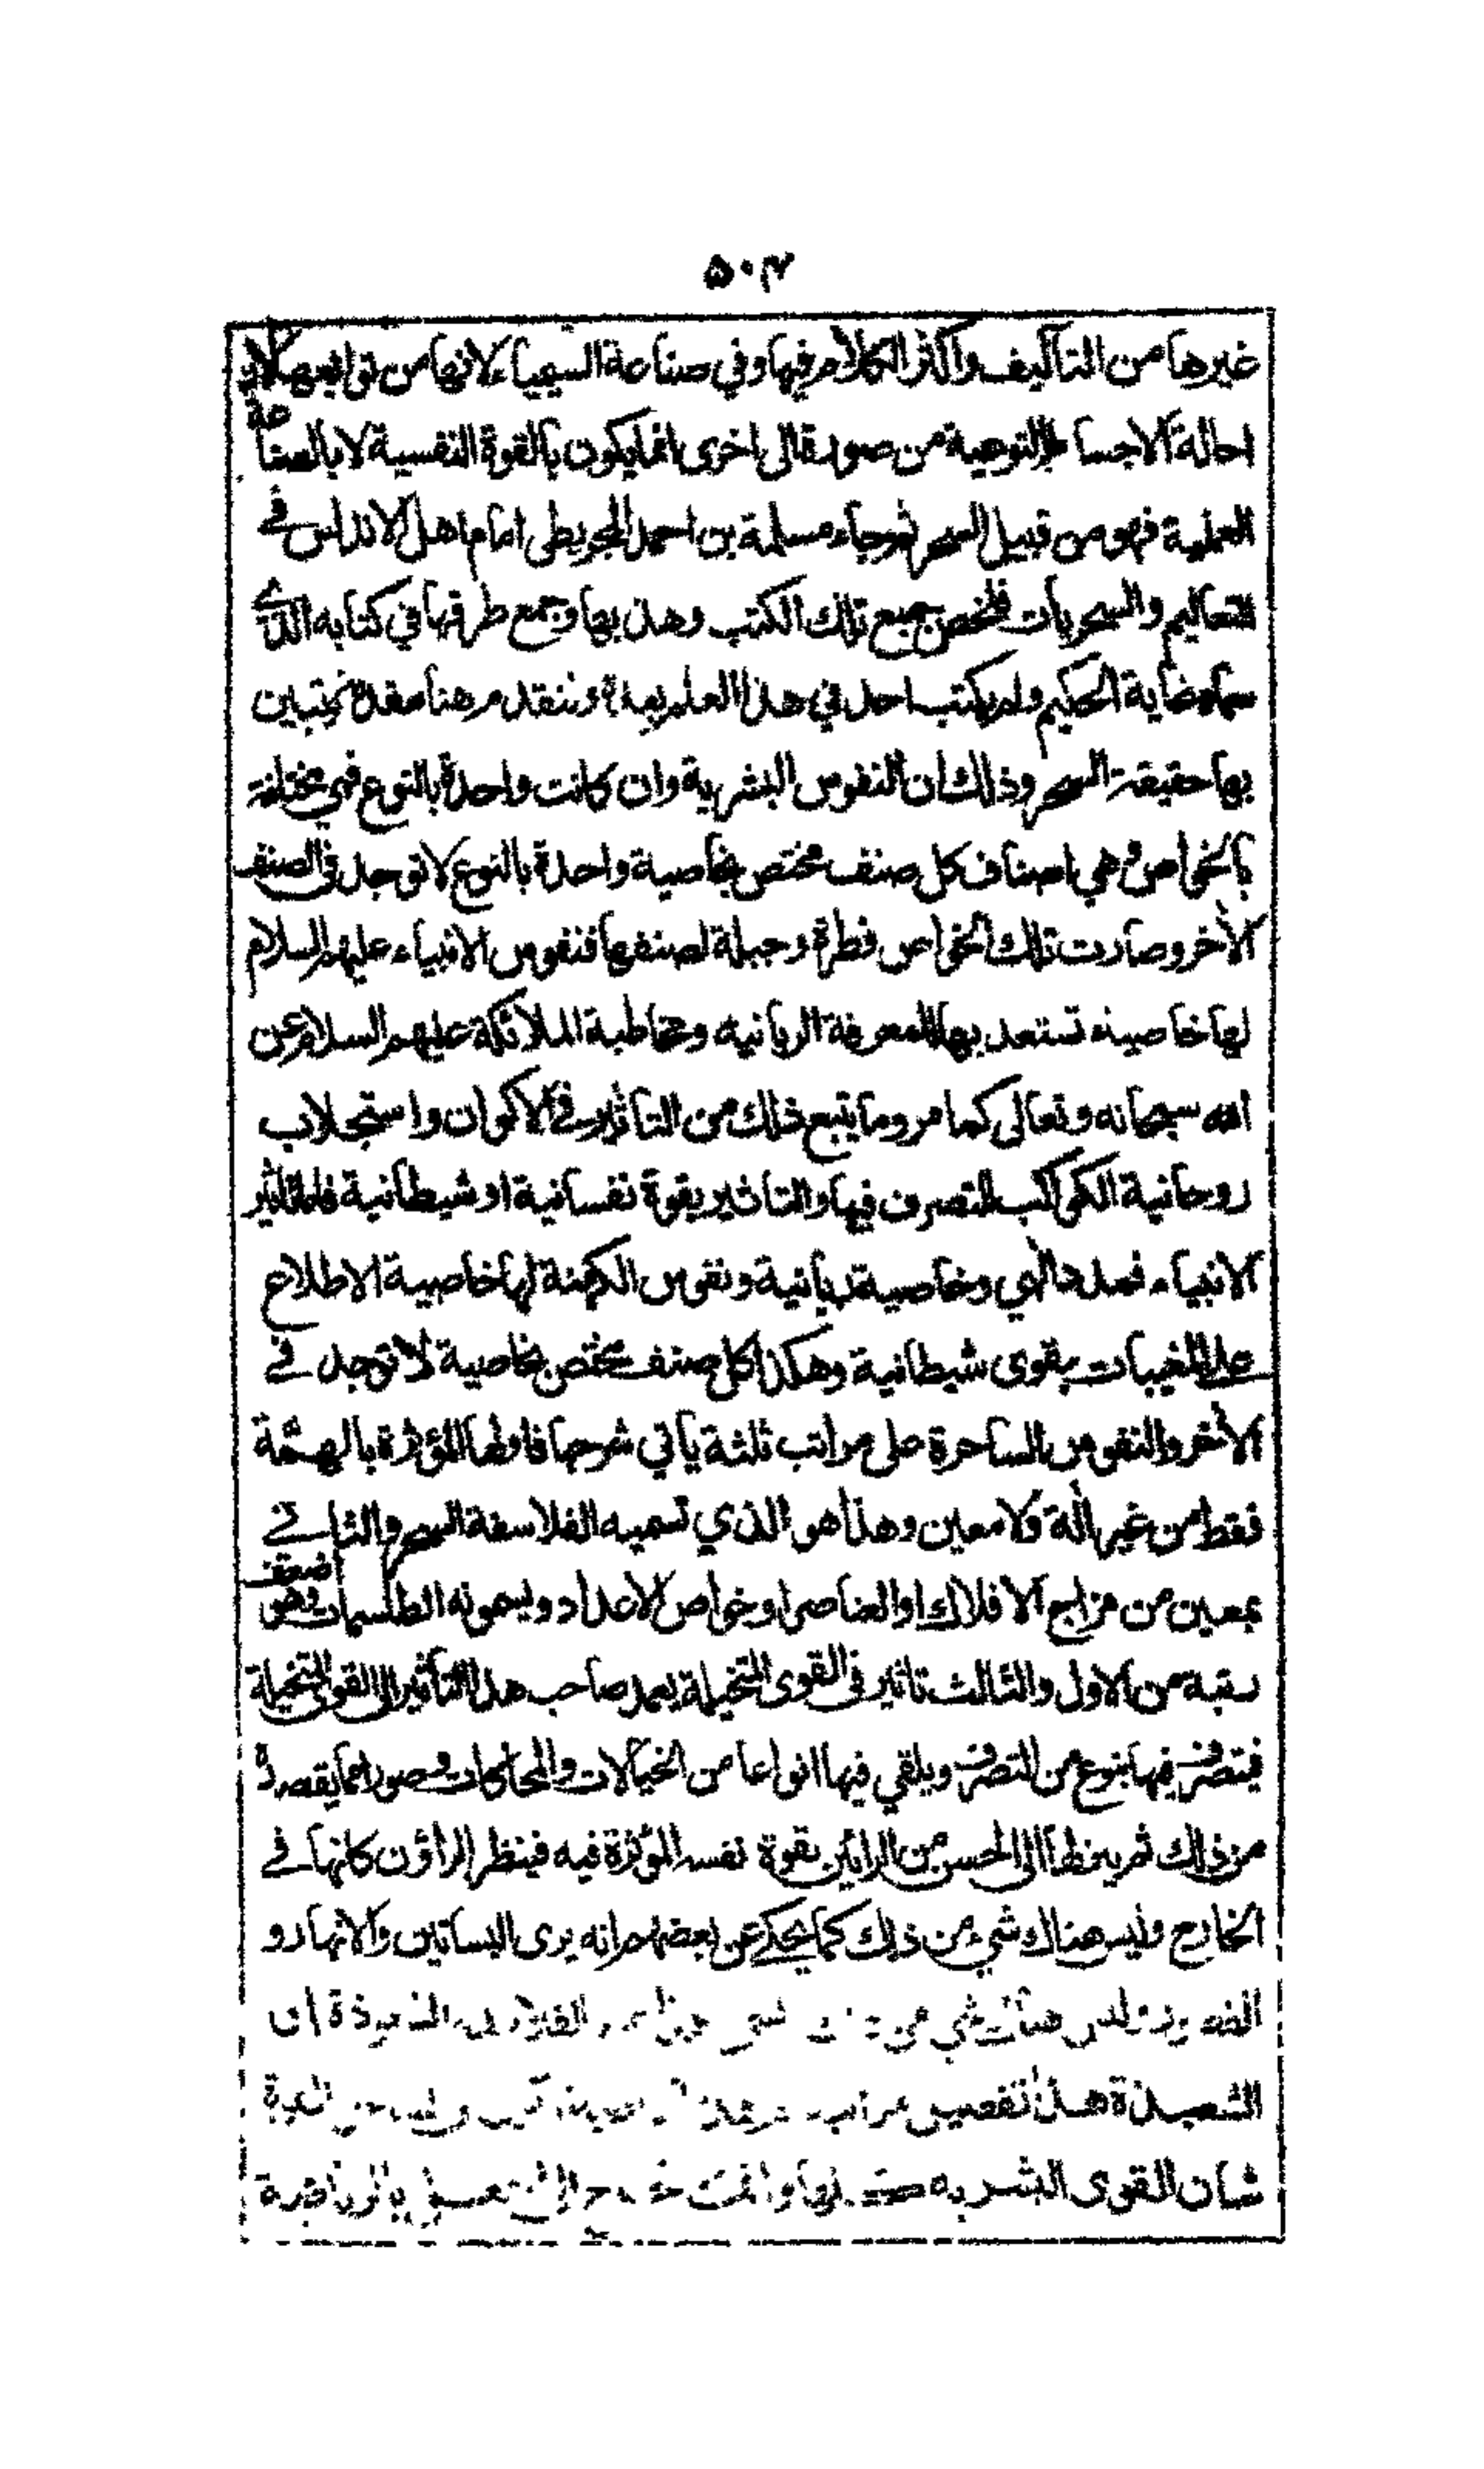 ۵۰۲
غيرها من التآليف واكثر الكلام فيها وفي صناعة السيمياء لانها من توابعها لان
احالة الاجسام النوعية من صورة الى اخرى انما يكون بالقوة النفسية لا بالصناعة
العملية فهو من قبيل السحر ثم جاء مسلمة بن احمد المجريطى امام اهل الاندلس فے
التعاليم والسحريات فلخص جميع تلك الكتب وهذبها وجمع طرقها في كتابه الذے
سماه غاية الحكيم ولم يكتب احد في هذا العلم بعده ونقدم هنا مقدمة يتبين
بها حقيقة السحر وذلك ان النفوس البشرية وان كانت واحدة بالنوع فهي مختلفة
بالخواص وهي اصناف كل صنف مختص بخاصية واحدة بالنوع لا توجد فى الصنف
الآخر وصارت تلك الخواص فطرة وجبلة لصنفها فنفوس الانبياء عليهم السلام
لها خاصية تستعد بها للمعرفة الربانية ومخاطبة الملائكة عليهم السلام عن
الله سبحانه وتعالى كما مر وما يتبع ذلك من التأثير فے الاكوان واستجلاب
روحانية الكواكب للتصرف فيها والتاثير بقوة نفسانية او شيطانية فاما تاثير
الانبياء فمدد الٰهي وخاصية ربانية ونفوس الكهنة لها خاصية الاطلاع
على المغيبات بقوى شيطانية وهكذا كل صنف مختص بخاصية لا توجد فے
الآخر والنفوس الساحرة على مراتب ثلثة يأتي شرحها فاولها المؤثرة بالهمّة
فقط من غير اٰلة ولا معين وهذا هو الذي تسميه الفلاسفة السحر والثانے
بمعين من مزاج الافلاك او العناصر او خواص الاعداد ويسمونه الطلسمات وهو اضعف
رتبة من الاول والثالث تاثير فى القوى المتخيلة يعمد صاحب هذا التأثير الى القوى المتخيلة
فيتصرف فيها بنوع من التصرف ويلقي فيها انواعا من الخيالات والمحاكات وصورا مما يقصده
من ذلك ثم ينزلها الى الحس من الرائين بقوة نفسه المؤثرة فيه فينظر الراؤن كانها فے
الخارج وليس هناك شيء من ذلك كما يحكے عن بعضهم انه يرى البساتين والانهار و
القصور وليس هناك شي من ذلك الفلاسفة الشعوذة او
الشعبذة هذا تفصيل مراتبه
شان القوى البشرية بالرياضة